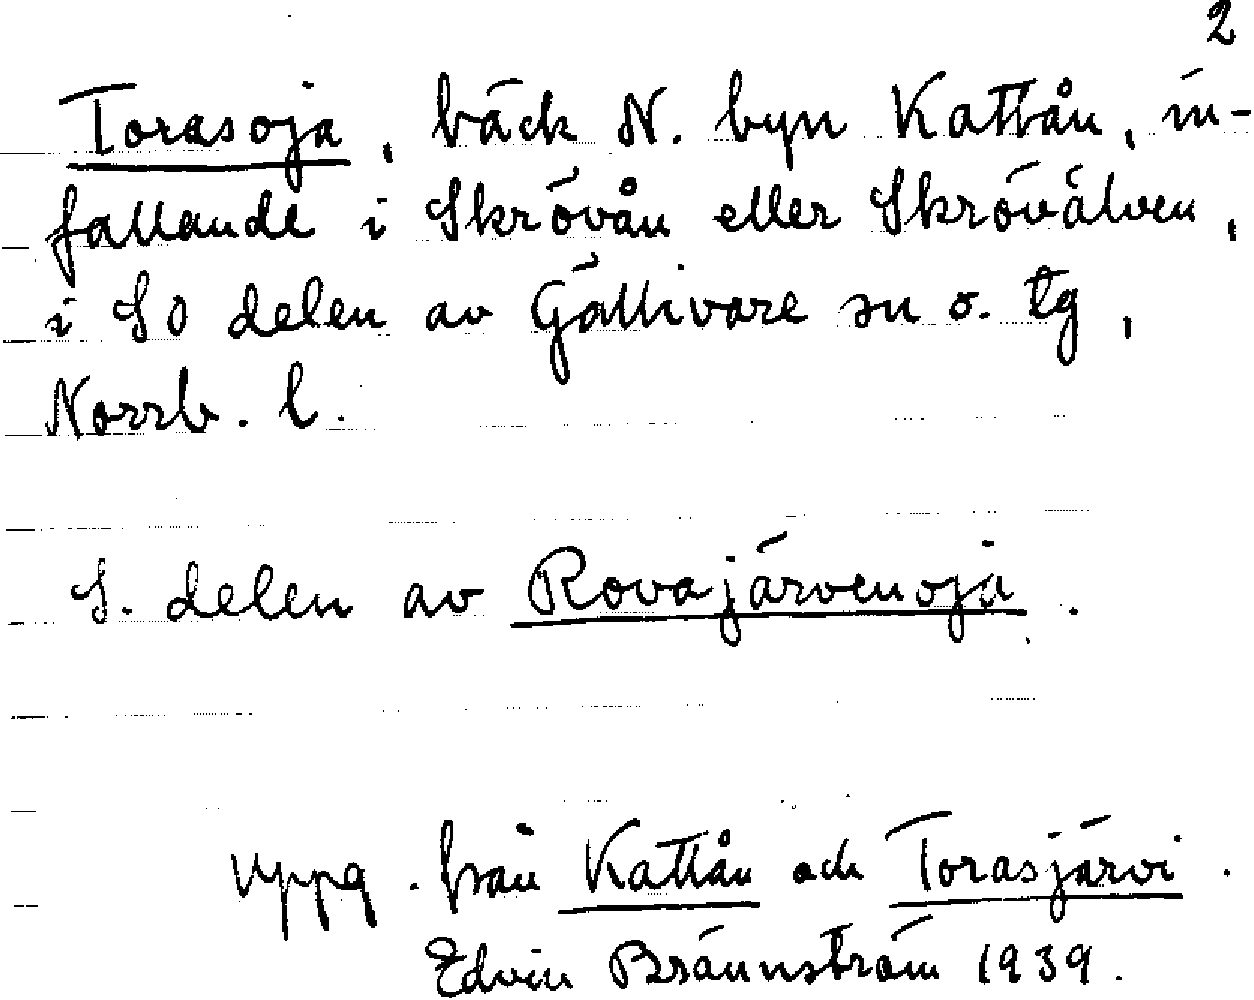 2
Torasoja, bäck N. byn Kattån, in-
fallande i Skrövån eller Skrövälven,
i SO delen av Gällivare sn o. tg,
Norrb. l.
S. delen av Rovajärvenoja.
Uppg. från Kattån och Torasjärvi.
Edvin Brännström 1939.